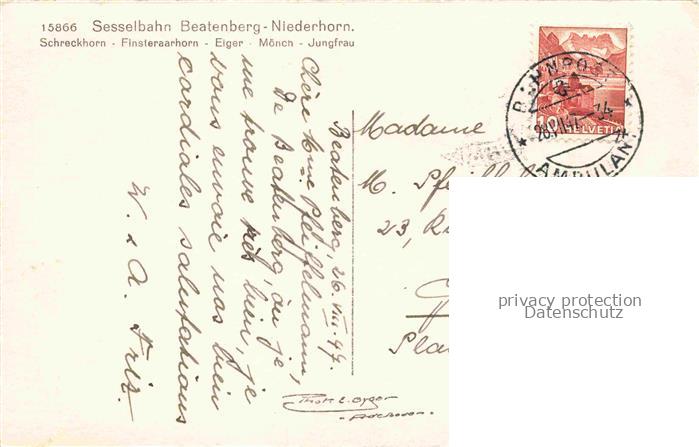 15866 Sesselbahn Beatenberg - Niederhorn.
Schreckhorn - Finsteraarhorn - Eiger - Mönch - Jungfrau
Beatenberg, 26. VIII. 47.
Chère Mme Pfeiffelmann,
De Beatenberg, où je
me trouve très bien, je
vous envoie mes bien
cordiales salutations
W. & A. Friz.
Madame
M. Pfeiff
23, R
Pla
BAHNPOST
AMBULANT
10 HELVETIA
Phot. E. Gyger
Adelboden.
privacy protection
Datenschutz